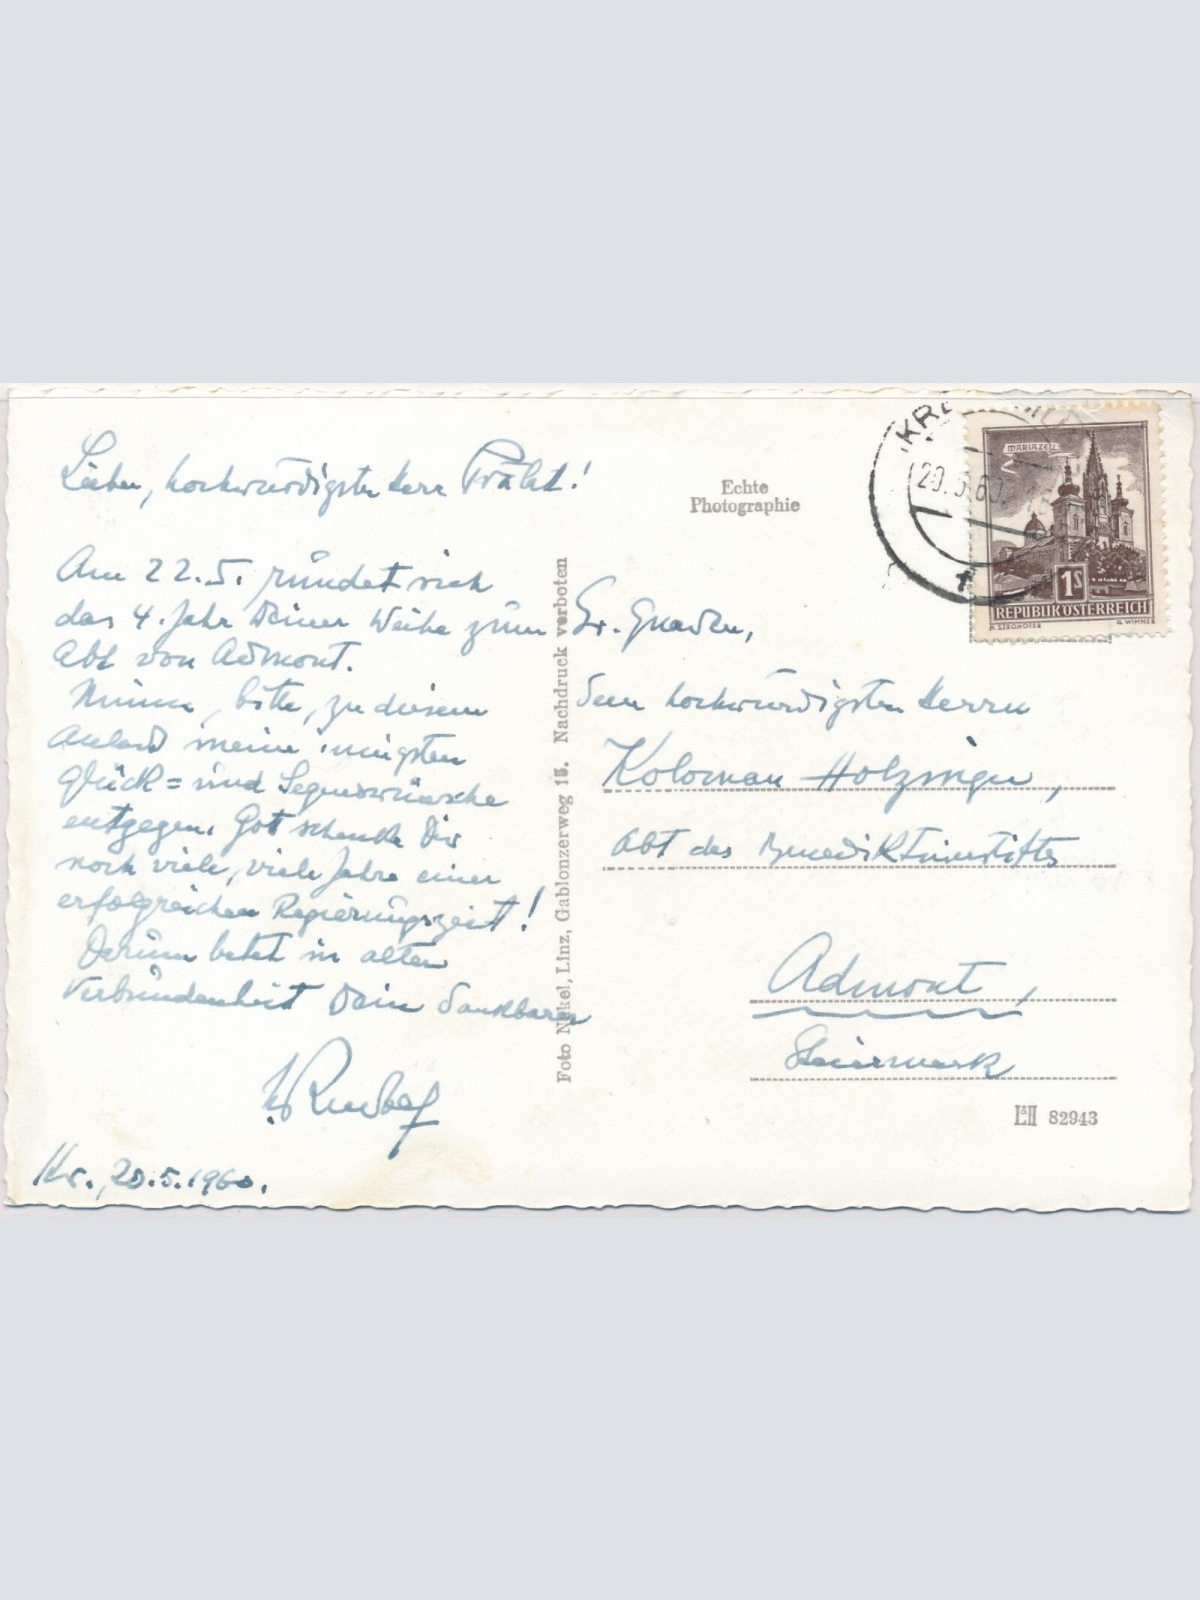 Lieber, hochwürdigster Herr Prälat!
Am 22.5. rundet sich
das 4. Jahr Deiner Weihe zum
Abt von Admont.
Nimm, bitte, zu diesem
Anlaß meine innigsten
Glück= und Segenswünsche
entgegen. Gott schenke Dir
noch viele, viele Jahre einer
erfolgreichen Regierungszeit!
Darum betet in alter
Verbundenheit Dein dankbarer
Rudolf
Kr., 20.5.1960.
Foto Nekel, Linz, Gablonzerweg 15. Nachdruck verboten
Echte
Photographie
20. 5. 60
MARIAZELL
1S
REPUBLIK ÖSTERREICH
Sr. Gnaden,
dem hochwürdigsten Herrn
Koloman Holzinger,
Abt des Benediktinerstiftes
Admont,
Steiermark
L&H 82943